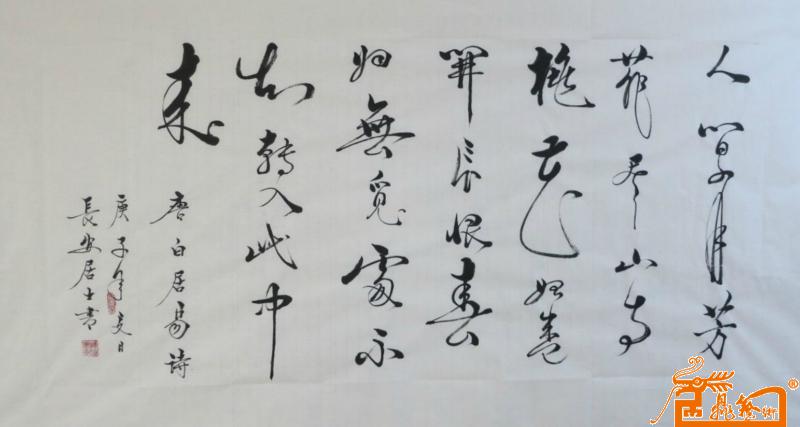 人間四月芳
菲尽山寺
桃花始盛
開長恨春
归無覓處不
知轉入此中
來
唐白居易詩
庚子年夏日
長安居士書